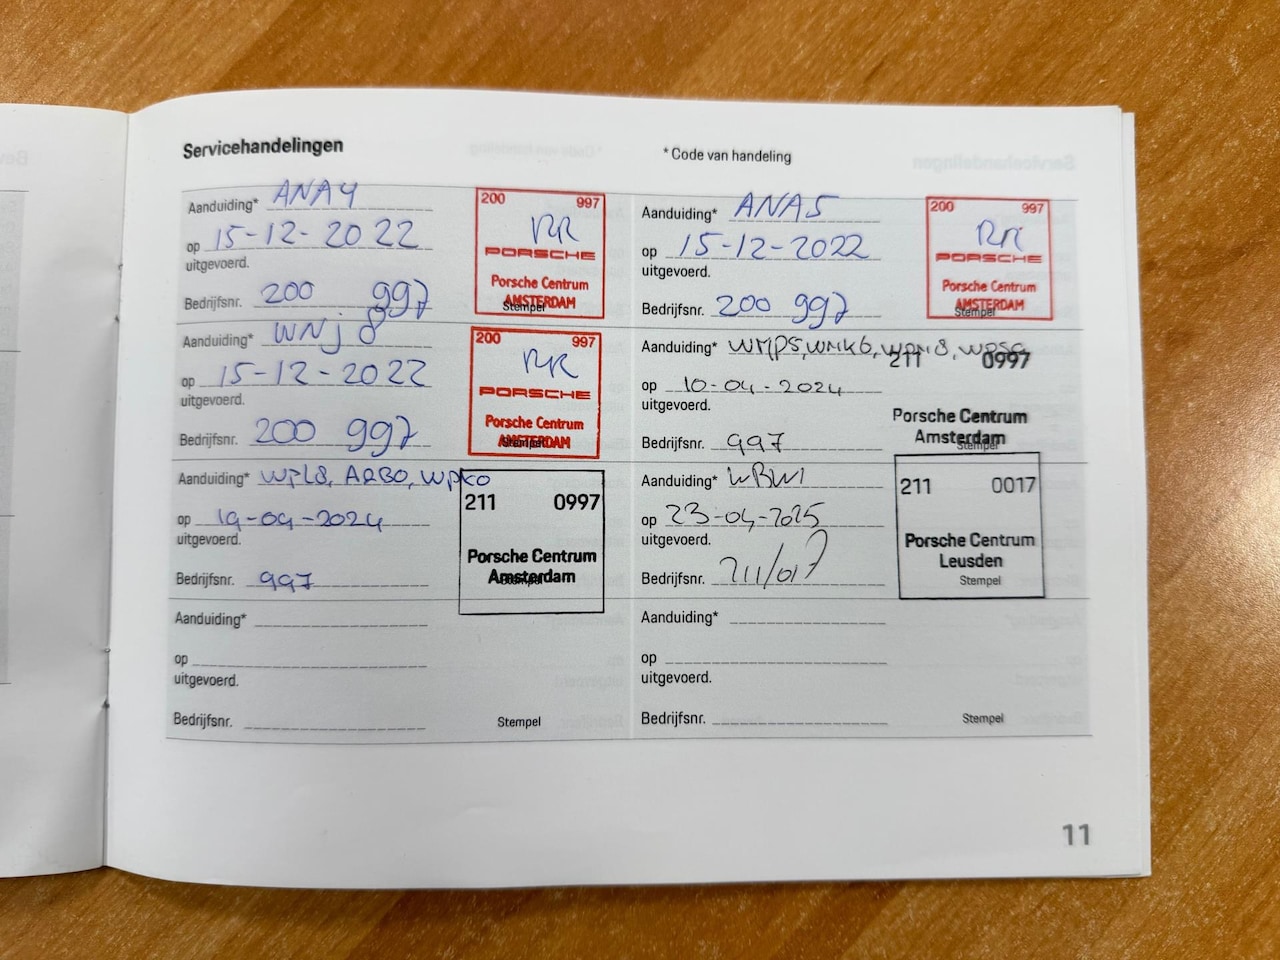 Servicehandelingen
* Code van handeling
Aanduiding* ANA4
op 15-12-2022
uitgevoerd.
Bedrijfsnr. 200 997
200 997
RR
PORSCHE
Porsche Centrum
AMSTERDAM
Stempel
Aanduiding* ANA5
op 15-12-2022
uitgevoerd.
Bedrijfsnr. 200 997
200 997
RR
PORSCHE
Porsche Centrum
AMSTERDAM
Stempel
Aanduiding* WNJ8
op 15-12-2022
uitgevoerd.
Bedrijfsnr. 200 997
200 997
RR
PORSCHE
Porsche Centrum
AMSTERDAM
Stempel
Aanduiding* WMP5, WMK6,
op 10-04-2024
uitgevoerd.
Bedrijfsnr. 997
211 0997
Porsche Centrum
Amsterdam
Stempel
Aanduiding* WPL8, ARB0, WPK0
op 19-04-2024
uitgevoerd.
Bedrijfsnr. 997
211 0997
Porsche Centrum
Amsterdam
Stempel
Aanduiding* WBW1
op 23-04-2025
uitgevoerd.
Bedrijfsnr. 211/017
211 0017
Porsche Centrum
Leusden
Stempel
Aanduiding*
op
uitgevoerd.
Bedrijfsnr.
Stempel
Aanduiding*
op
uitgevoerd.
Bedrijfsnr.
Stempel
11